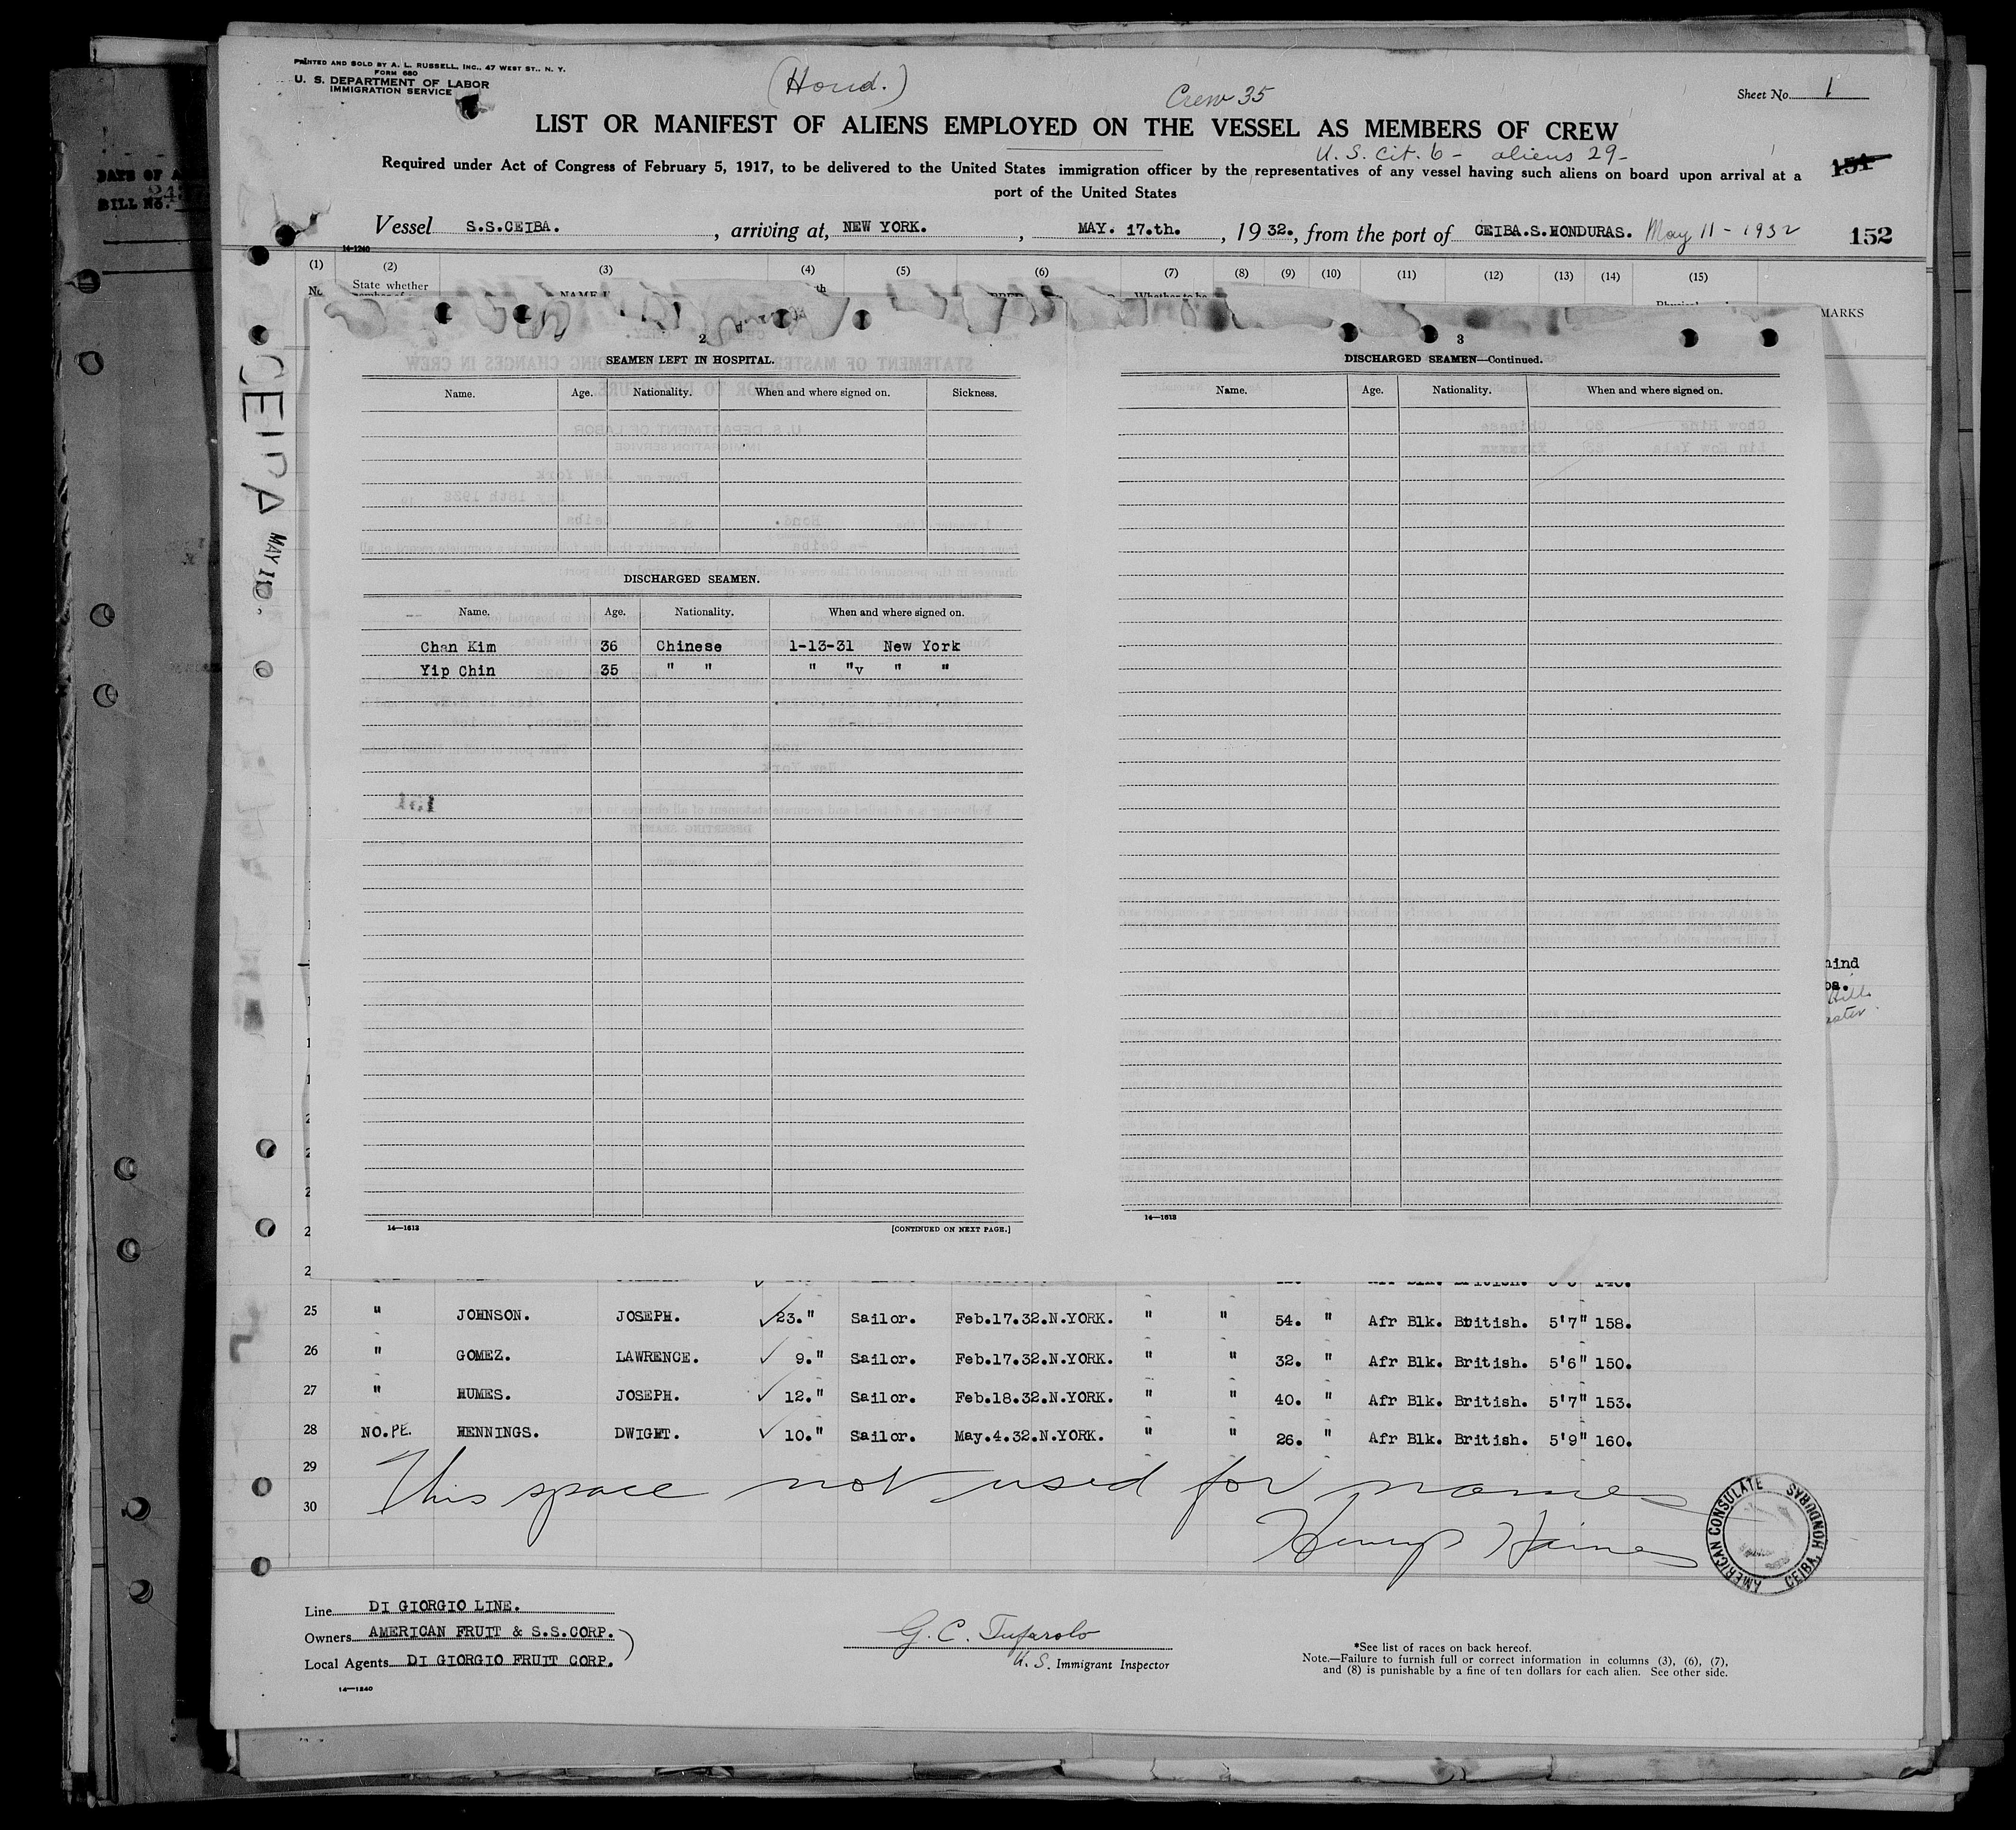 PRINTED AND SOLD BY A. L. RUSSELL, INC., 47 WEST ST., N. Y.
FORM 680
U. S. DEPARTMENT OF LABOR
IMMIGRATION SERVICE
(Hond.)
Crew 35
Sheet No. 1
LIST OR MANIFEST OF ALIENS EMPLOYED ON THE VESSEL AS MEMBERS OF CREW
U. S. Cit. 6 - aliens 29 -
Required under Act of Congress of February 5, 1917, to be delivered to the United States immigration officer by the representatives of any vessel having such aliens on board upon arrival at a
port of the United States
151
Vessel S.S.CEIBA. , arriving at, NEW YORK. , MAY. 17.th. , 1932., from the port of CEIBA.S.HONDURAS. May 11 - 1932
152
14-1240
(1) (2) (3) (4) (5) (6) (7) (8) (9) (10) (11) (12) (13) (14) (15)
State whether
MARKS
DATE OF A
BILL No.
CEIBA MAY 18.
2
SEAMEN LEFT IN HOSPITAL.
Name. Age. Nationality. When and where signed on. Sickness.
DISCHARGED SEAMEN.
Name. Age. Nationality. When and where signed on.
Chan Kim 36 Chinese 1-13-31 New York
Yip Chin 35 " " " "v " "
14—1613 [CONTINUED ON NEXT PAGE.]
3
DISCHARGED SEAMEN—Continued.
Name. Age. Nationality. When and where signed on.
14—1613
25 " JOHNSON. JOSEPH. ✓ 23." Sailor. Feb.17.32.N.YORK. " " 54. " Afr Blk. British. 5'7" 158.
26 " GOMEZ. LAWRENCE. ✓ 9." Sailor. Feb.17.32.N.YORK. " " 32. " Afr Blk. British. 5'6" 150.
27 " HUMES. JOSEPH. ✓ 12." Sailor. Feb.18.32.N.YORK. " " 40. " Afr Blk. British. 5'7" 153.
28 NO.PE. HENNINGS. DWIGHT. ✓ 10." Sailor. May.4.32.N.YORK. " " 26. " Afr Blk. British. 5'9" 160.
29
30
This space not used for names
Henry Haines
AMERICAN CONSULATE
CEIBA, HONDURAS
Line DI GIORGIO LINE.
Owners AMERICAN FRUIT & S.S.CORP.
Local Agents DI GIORGIO FRUIT CORP.
14—1240
G. C. Tufarolo
U. S. Immigrant Inspector
*See list of races on back hereof.
Note.—Failure to furnish full or correct information in columns (3), (6), (7),
and (8) is punishable by a fine of ten dollars for each alien. See other side.